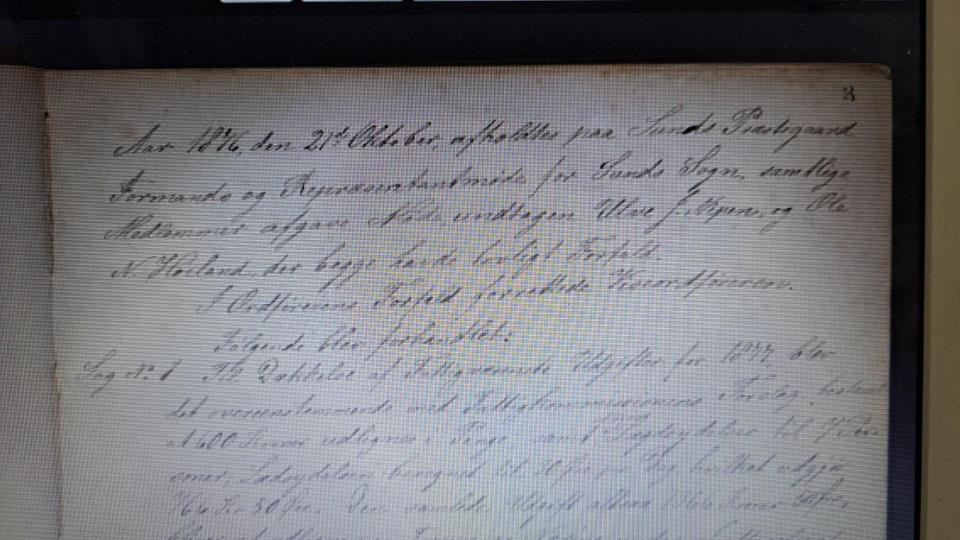 3
Aar 1876, den 21de Oktober, afholdtes paa Sunds Præstegaard
Formands og Repræsentantmøde for Sunds Sogn, samtlige
Medlemmer afgave Møde, undtagen Ulve J. Vipen, og Ole
N. Høiland, der begge havde lovligt Forfald.
I Ordførerens Forfald forrettede Viceordføreren.
Følgende blev forhandlet:
Sag No 1 Til Dækkelse af Fattigvæsenets Udgifter for 1877, blev
det overensstemmende med Fattigkommissionens Forslag, bestemt
at 600 Kroner udlignes i Penge, samt Lægdsydelser til
beregnet til 30 Øre pr Dag hvilket udgjør
766 Kr 50 Øre. Den samlede Udgift altsaa 1366 Kroner 50 Øre,